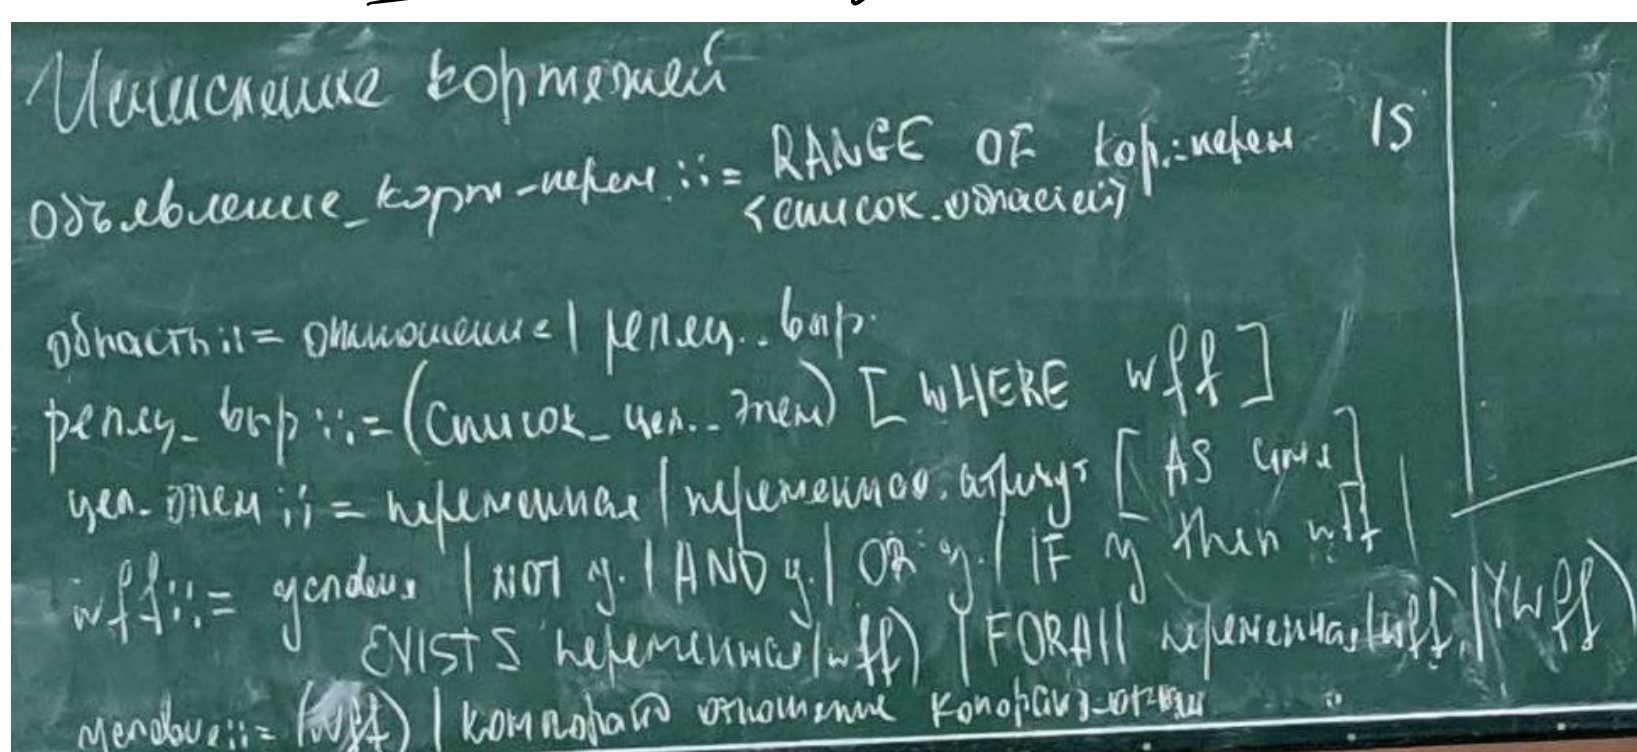 Исчисление кортежей
объявление_корт-перем ::= RANGE OF кор.-перем IS
<список.областей>
область ::= отношение | реляц.. выр.
реляц_ выр ::= (Список_цел.. элем) [WHERE wff]
цел. элем ::= переменная | переменная.атрибут [AS имя]
wff ::= условия | NOT у. | AND у. | OR у. | IF у then wff |
EXISTS переменная(wff) | FORALL переменная(wff) | (wff)
условие ::= (wff) | компоранд отношение